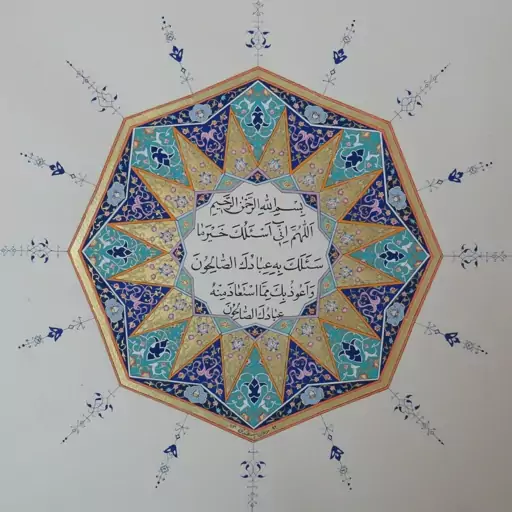 بسم الله الرحمن الرحیم
اللهم انی اسئلک خیر ما
سئلک به عبادک الصالحون
و اعوذ بک مما استعاذ منه
عبادک الصالحون